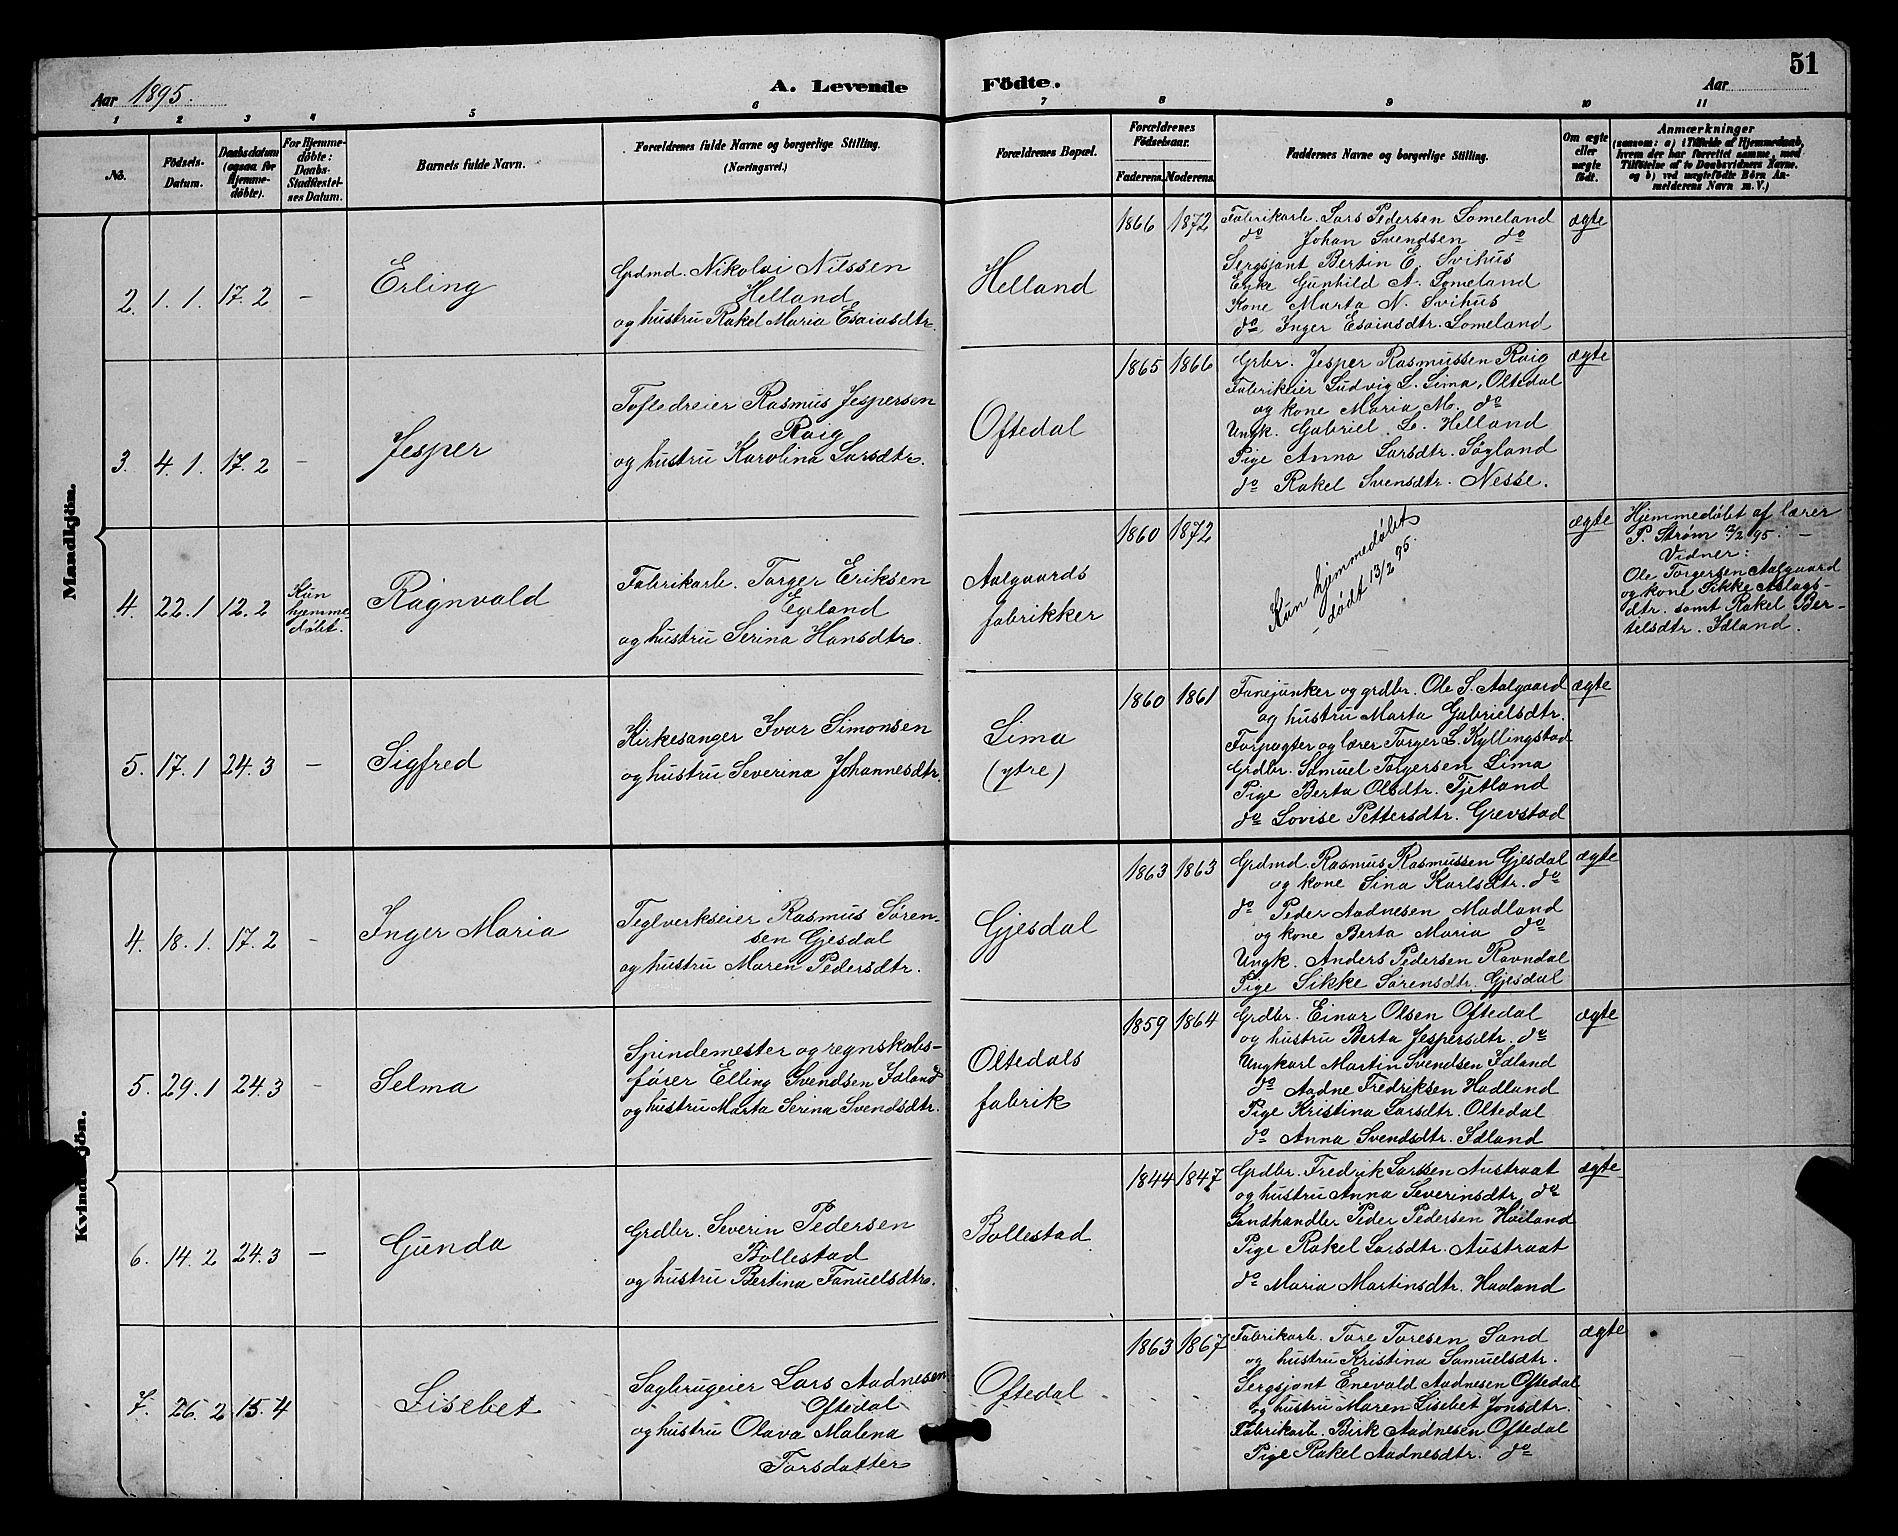 51
Aar 1895.
A. Levende Födte.
Aar
1 2 3 4 5 6 7 8 9 10 11
No.
Födsels-Datum.
Daabsdatum (ogsaa for Hjemmedöbte).
For Hjemmedöbte: Daabs-Stadfæstelses Datum.
Barnets fulde Navn.
Forældrenes fulde Navne og borgerlige Stilling. (Næringsvei.)
Forældrenes Bopæl.
Forældrenes Födselsaar.
Faderens. Moderens.
Faddernes Navne og borgerlige Stilling.
Om ægte eller uægte födt.
Anmærkninger
(saasom: a) i Tilfælde af Hjemmedaab,
hvem der har forrettet samme, med
Tilföielse af to Daabsvidners Navne,
og b) ved uægtefödte Börn An-
melderens Navn m. V.)
Mandkjön.
2. 1. 1. 17. 2 –
Erling
Grdmd. Nikolai Nilssen
Helland
og hustru Rakel Maria Esaiasdtr.
Helland
1866 1872
Fabrikarb. Lars Pedersen Lomeland
do Johan Svendsen do
Sergsjant Bertin E. Svihus
Enke Gunhild A. Lomeland
Kone Marta N. Svihus
do Inger Esaiasdtr. Lomeland
ægte
3. 4. 1. 17. 2 –
Jesper
Tøfledreier Rasmus Jespersen
Røig
og hustru Karolina Larsdtr.
Oftedal
1865 1866
Grbr. Jesper Rasmussen Røig
Fabrikeier Ludvig L. Lima, Oltedal
og kone Maria M. do
Ungk. Gabriel L. Helland
Pige Anna Larsdtr. Søyland
do Rakel Svensdtr. Nesse.
ægte
4. 22. 1 12. 2
Kun
hjemme-
døbt.
Ragnvald
Fabrikarb. Torger Eriksen
Egeland
og hustru Serina Hansdtr.
Aalgaards
fabrikker
1860 1872
Kun hjemmedøbt
– dødt 13/2 95.
ægte
Hjemmedøbt af lærer
P. Strøm 12/2 95. –
Vidner:
Ole Torgersen Aalgaard
og kone Sikke Aslags-
dtr. samt Rakel Ber-
telsdtr. Idland.
5. 17. 1 24. 3 –
Sigfred
Kirkesanger Ivar Simonsen
og hustru Severina Johannesdtr.
Lima
(ytre)
1860 1861
Fanejunker og grdbr. Ole S. Aalgaard
og hustru Marta Gabrielsdtr.
Forpagter og lærer Torger L. Kyllingstad
Grdbr. Samuel Torgersen Lima
Pige Berta Olsdtr. Tjetland
do Lovise Pettersdtr. Grevstad
ægte
Kvindekjön.
4. 18. 1. 17. 2 –
Inger Maria
Teglverkseier Rasmus Søren-
sen Gjesdal
og hustru Maren Pedersdtr.
Gjesdal
1863 1863
Grdmd. Rasmus Rasmussen Gjesdal
og kone Sina Karlsdtr. do
do Peder Aadnesen Madland
og kone Berta Maria do
Ungk. Anders Pedersen Ravndal
Pige Sikke Sørensdtr. Gjesdal
ægte
5. 29. 1 24. 3 –
Selma
Spindemester og regnskabs-
fører Elling Svendsen Idland
og hustru Marta Serina Svendsdtr.
Oltedals
fabrik
1859 1864
Grdbr. Einar Olsen Oftedal
og hustru Berta Jespersdtr. do
Ungkarl Martin Svendsen Idland
do Aadne Fredriksen Hadland
Pige Kristina Larsdtr. Oltedal
do Anna Svendsdtr. Idland
ægte
6. 14. 2 24. 3 –
Gunda
Grdbr. Severin Pedersen
Bollestad
og hustru Bertina Tanuelsdtr.
Bollestad
1844 1847
Grdbr. Fredrik Larssen Austraat
og hustru Anna Severinsdtr. do
Landhandler Peder Pedersen Høiland
Pige Rakel Larsdtr. Austraat
do Maria Martinsdtr. Haaland
ægte
7. 26. 2 15. 4
Lisebet
Sagbrugeier Lars Aadnesen
Oftedal
og hustru Olava Malena
Torsdatter
Oftedal
1863 1867
Fabrikarb. Tore Toresen Sand
og hustru Kristina Samuelsdtr.
Sergsjant Enevald Aadnesen Oftedal
og hustru Maren Lisebet Jonsdtr.
Fabrikarb. Birk Aadnesen Oftedal
Pige Rakel Aadnesdtr. do
ægte